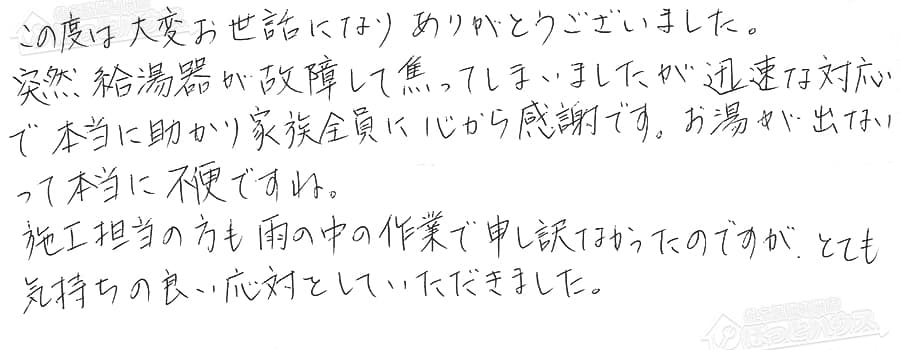 この度は大変お世話になりありがとうございました。
突然給湯器が故障して焦ってしまいましたが迅速な対応
で本当に助かり家族全員に心から感謝です。お湯が出ない
って本当に不便ですね。
施工担当の方も雨の中の作業で申し訳なかったのですが、とても
気持ちの良い応対をしていただきました。